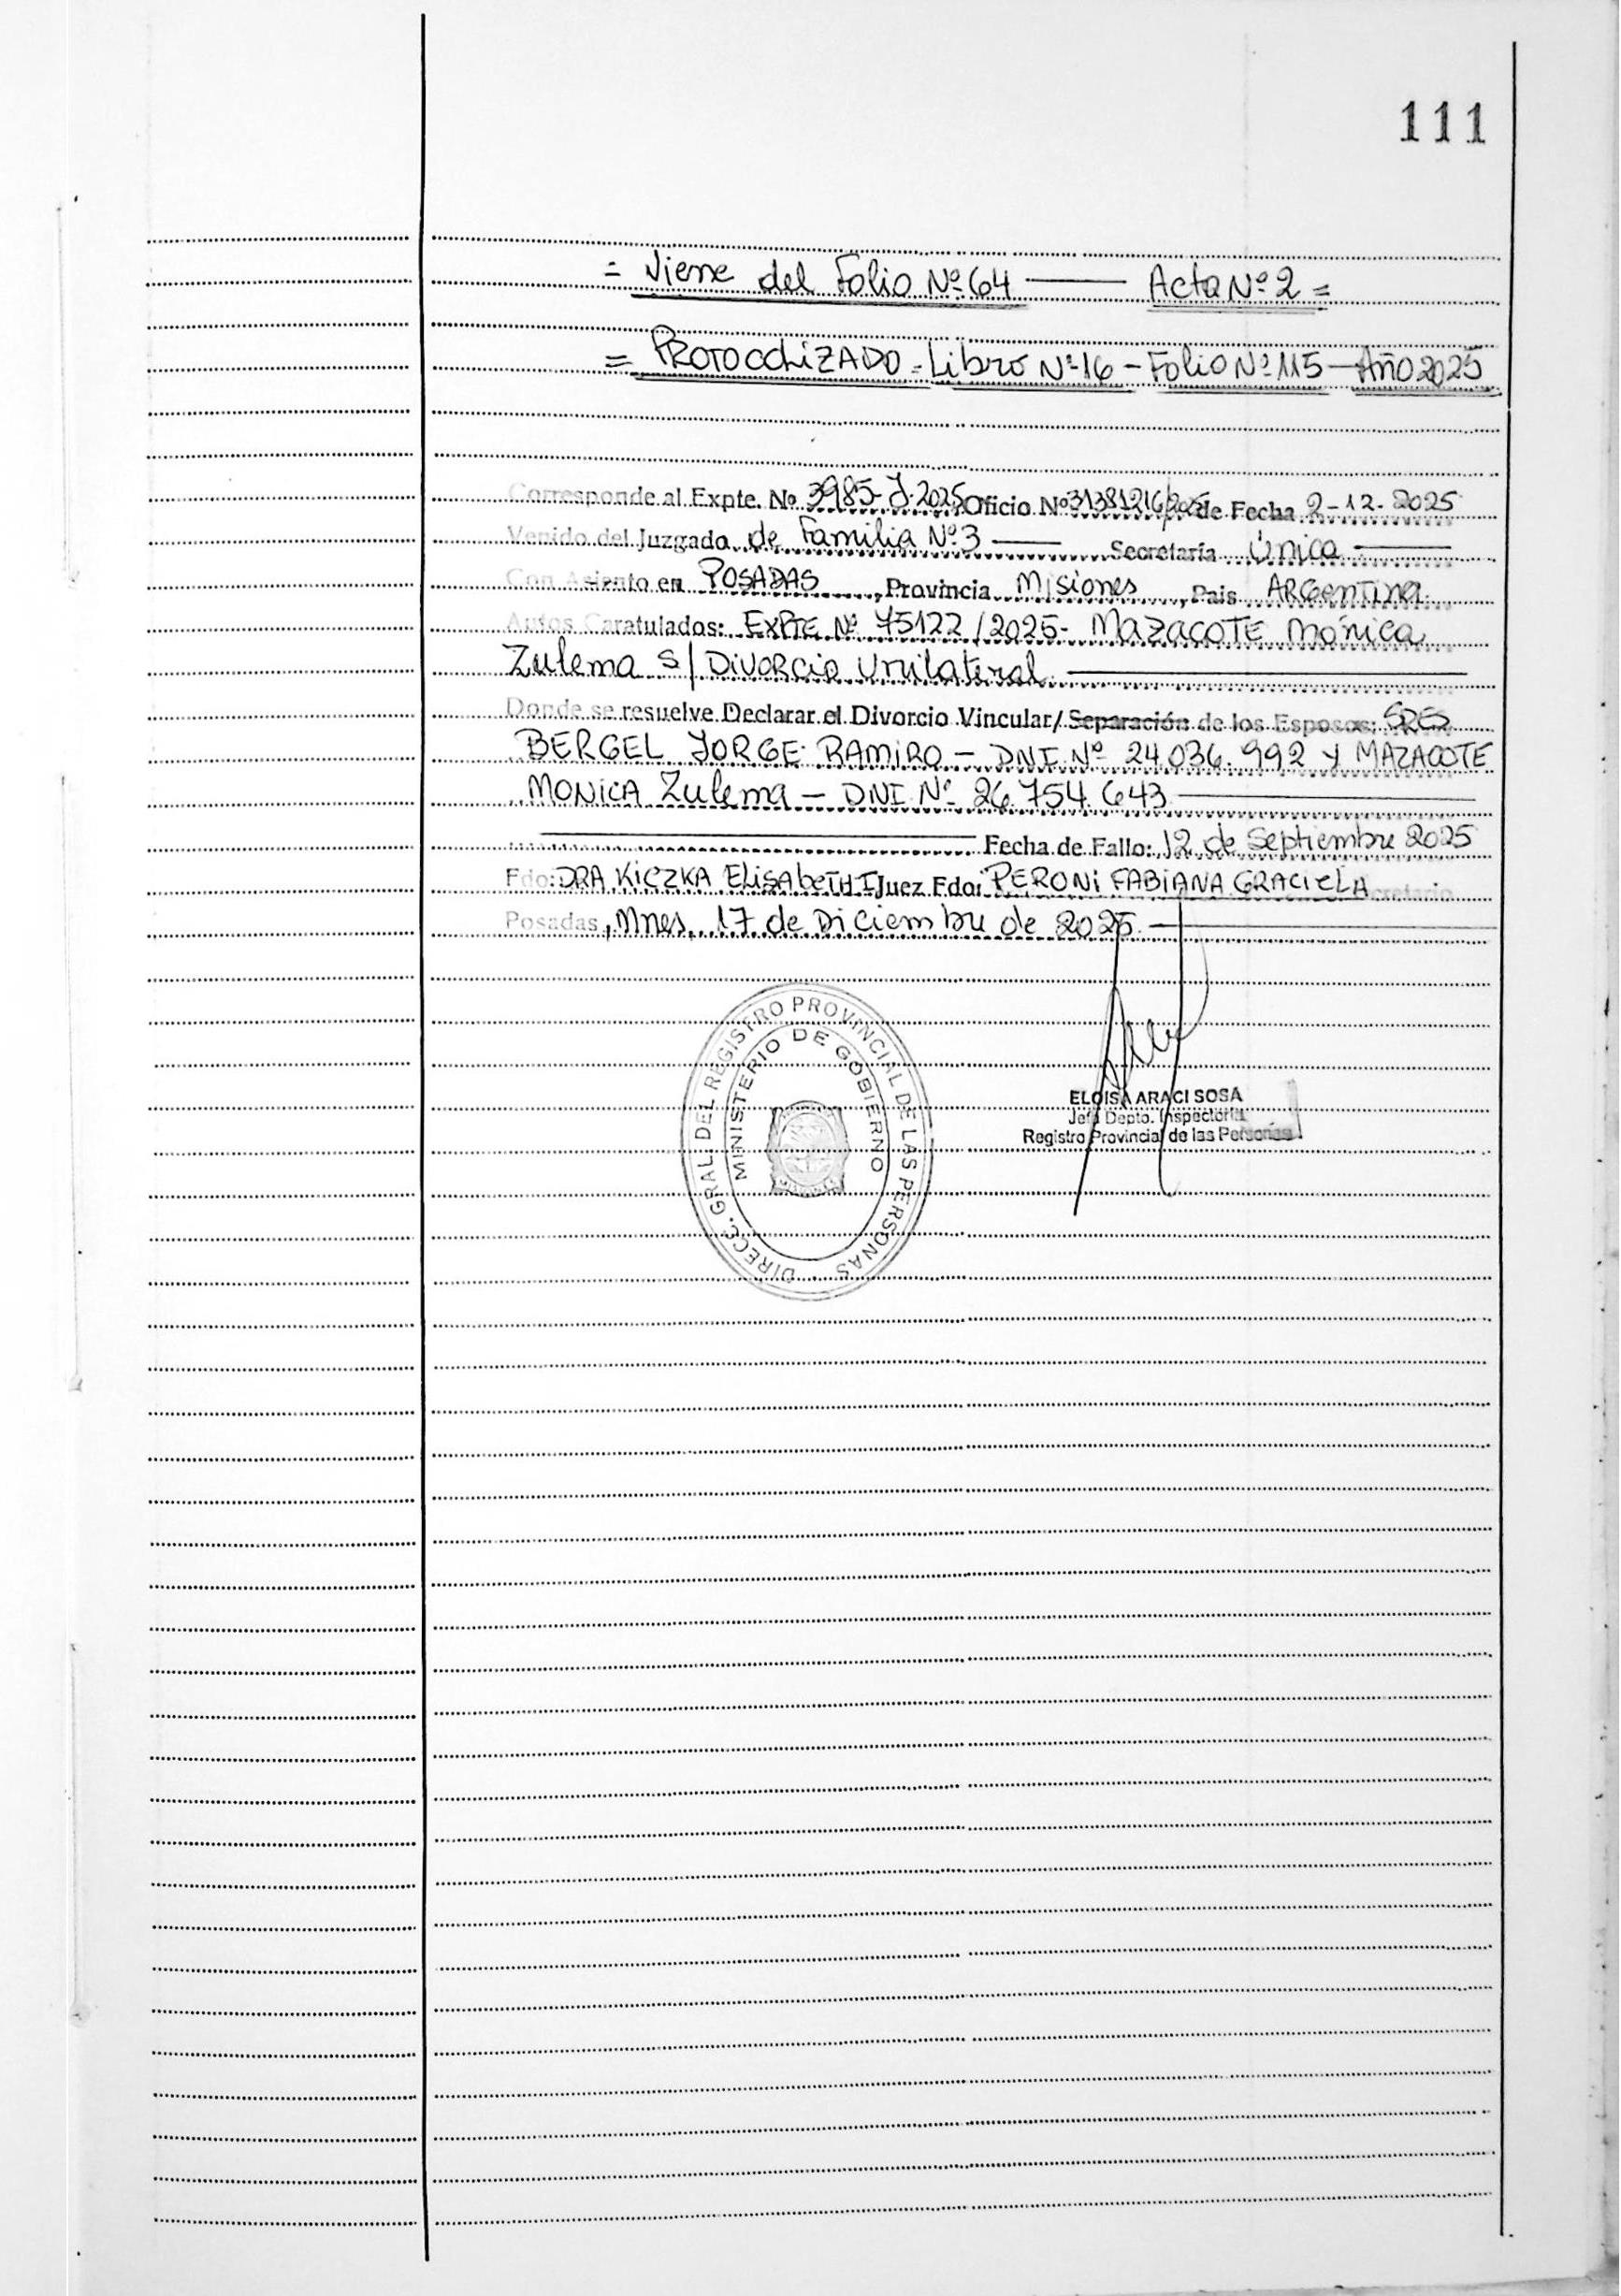 111
= Viene del Folio Nº 64 —— Acta Nº 2 =
= PROTOCOLIZADO - Libro Nº 16 - Folio Nº 115 - Año 2025
Corresponde al Expte. Nº 3985-J-2025 Oficio Nº 31381216/2025 de Fecha 2-12-2025
Venido del Juzgado de Familia Nº 3 —— Secretaría Única ——
Con Asiento en POSADAS, Provincia Misiones, Pais ARGENTINA
Autos Caratulados: EXPTE Nº 75122/2025- MAZACOTE Mónica
Zulema S/ DIVORCIO Unilateral ——
Donde se resuelve Declarar el Divorcio Vincular/ Separación de los Esposos: SRES
BERGEL JORGE RAMIRO - DNI Nº 24.036.992 y MAZACOTE
MONICA Zulema - DNI Nº 26.754.643 ——
—— Fecha de Fallo: 12 de Septiembre 2025
Fdo: DRA KICZKA ELISABETH I Juez Fdo: PERONI FABIANA GRACIELA Secretario
Posadas, Mnes, 17 de Diciembre de 2025 ——
DIRECC. GRAL. DEL REGISTRO PROVINCIAL DE LAS PERSONAS
MINISTERIO DE GOBIERNO
MISIONES
ELOISA ARACI SOSA
Jefa Depto. Inspectoría
Registro Provincial de las Personas